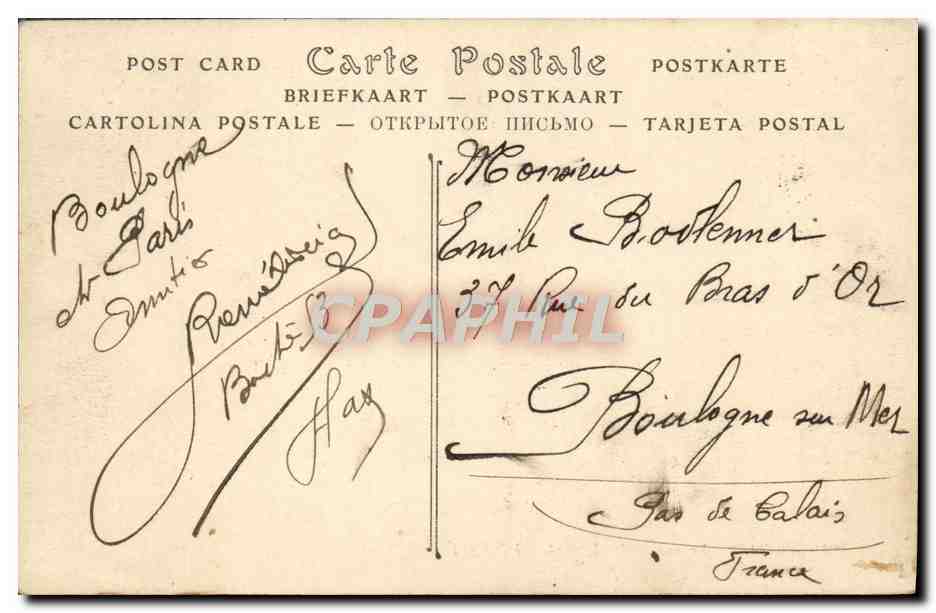 POST CARD Carte Postale POSTKARTE
BRIEFKAART — POSTKAART
CARTOLINA POSTALE — ОТКРЫТОЕ ПИСЬМО — TARJETA POSTAL
Boulogne
Paris
René
Monsieur
Emile
37 Rue du Bras d'Or
Boulogne sur Mer
Pas de Calais
France
CPAPHIL